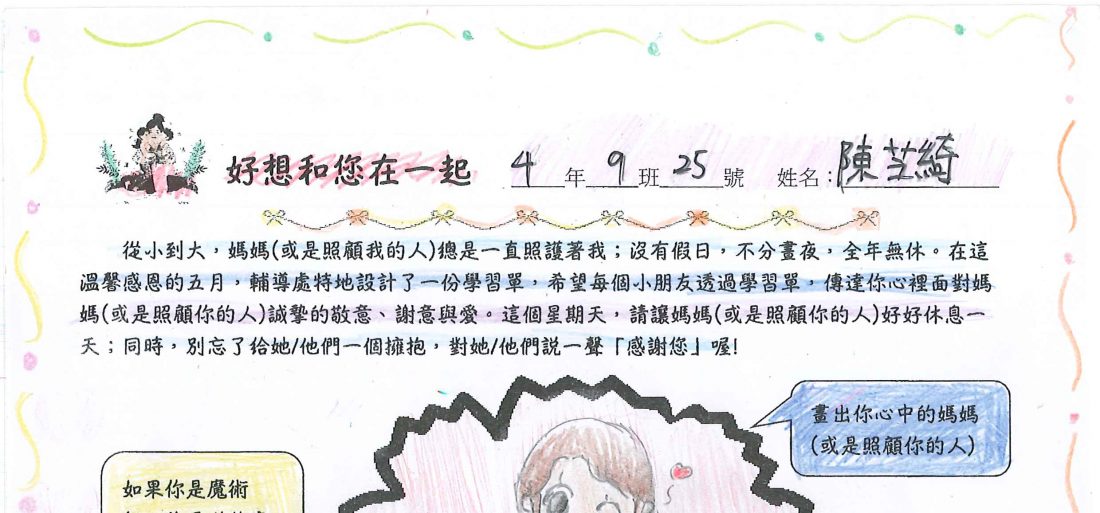 好想和您在一起 4 年 9 班 25 號 姓名:陳芝綺
從小到大,媽媽(或是照顧我的人)總是一直照護著我;沒有假日,不分晝夜,全年無休。在這
溫馨感恩的五月,輔導處特地設計了一份學習單,希望每個小朋友透過學習單,傳達你心裡面對媽
媽(或是照顧你的人)誠摯的敬意、謝意與愛。這個星期天,請讓媽媽(或是照顧你的人)好好休息一
天;同時,別忘了給她/他們一個擁抱,對她/他們說一聲「感謝您」喔!
畫出你心中的媽媽
(或是照顧你的人)
如果你是魔術